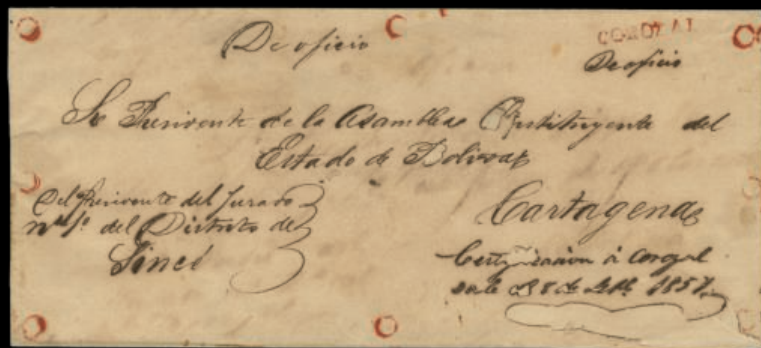 De oficio
COROZAL
De oficio
Sr Presidente de la Asamblea Constituyente del
Estado de Bolivar
Cartagena
Del Presidente del Jurado
nº 1º del Distrito de
Sincé
Certificacion á Corozal
sale 28 de 1857